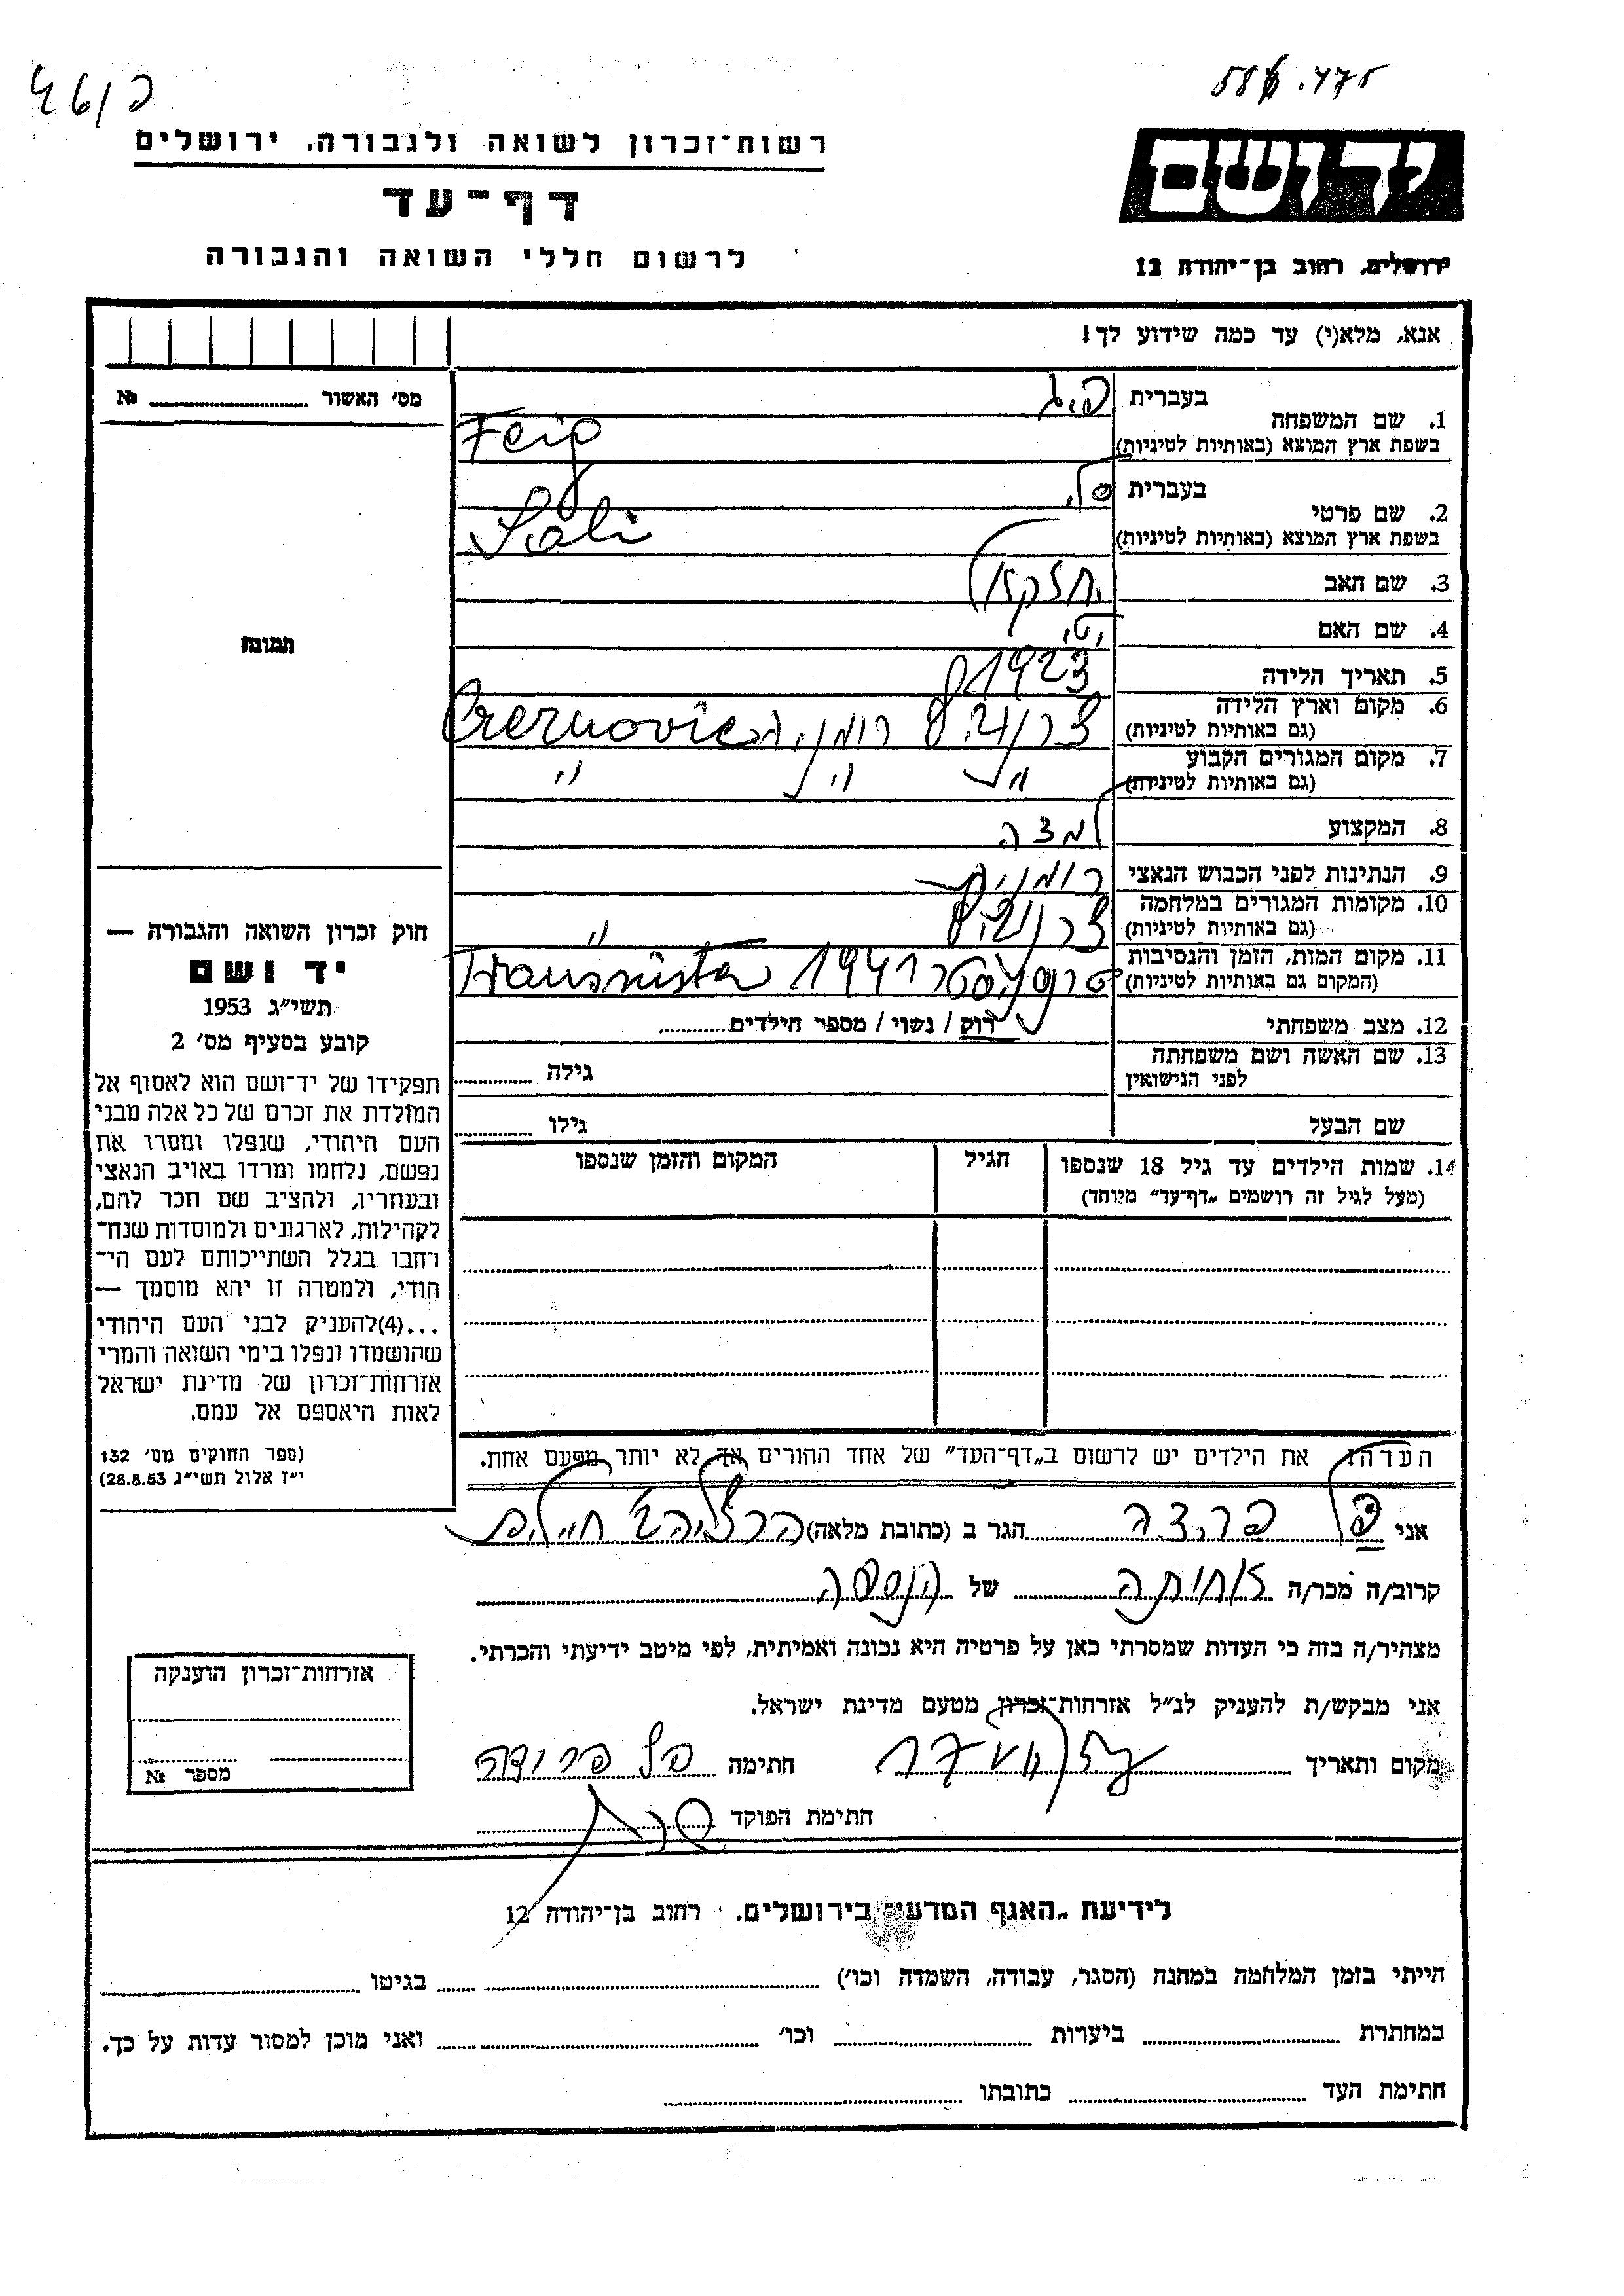 רשות־זכרון לשואה ולגבורה. ירושלים
דף־עד
לרשום חללי השואה והגבורה
יד ושם
ירושלים, רחוב בן־יהודה 12
אנא, מלא(י) עד כמה שידוע לך!
מס׳ האשור № 
1. שם המשפחה
בעברית
פייג
בשפת ארץ המוצא (באותיות לטיניות)
Feig
2. שם פרטי
בעברית
סלי
בשפת ארץ המוצא (באותיות לטיניות)
Sali
3. שם האב
יחזקאל
4. שם האם
תמונה
5. תאריך הלידה
1923
6. מקום וארץ הלידה
(גם באותיות לטיניות)
צרנוביץ רומניה Czernovic
7. מקום המגורים הקבוע
(גם באותיות לטיניות)
״ ״ ״
8. המקצוע
9. הנתינות לפני הכבוש הנאצי
רומנית
10. מקומות המגורים במלחמה
(גם באותיות לטיניות)
צרנוביץ ״
11. מקום המות, הזמן והנסיבות
(המקום גם באותיות לטיניות)
1941
12. מצב משפחתי
רוק / נשוי / מספר הילדים
13. שם האשה ושם משפחתה
לפני הנישואין
גילה
שם הבעל
גילו
14. שמות הילדים עד גיל 18 שנספו
(מעל לגיל זה רושמים „דף־עד״ מיוחד)
הגיל
המקום והזמן שנספו
הערה: את הילדים יש לרשום ב„דף־העד״ של אחד ההורים אך לא יותר מפעם אחת.
חוק זכרון השואה והגבורה —
יד ושם
תשי״ג 1953
קובע בסעיף מס׳ 2
תפקידו של יד־ושם הוא לאסוף אל
המולדת את זכרם של כל אלה מבני
העם היהודי, שנפלו ומסרו את
נפשם, נלחמו ומרדו באויב הנאצי
ובעוזריו, ולהציב שם וזכר להם,
לקהילות, לארגונים ולמוסדות שנח־
רחבו בגלל השתייכותם לעם הי־
הודי, ולמטרה זו יהא מוסמך —
...(4)להעניק לבני העם היהודי
שהושמדו ונפלו בימי השואה והמרי
אזרחות־זכרון של מדינת ישראל
לאות היאספם אל עמם.
(ספר החוקים מס׳ 132
י״ז אלול תשי״ג 28.8.53)
אני הגר ב (כתובת מלאה)
קרוב/ה מכר/ה אחותה של הנספה
מצהיר/ה בזה כי העדות שמסרתי כאן על פרטיה היא נכונה ואמיתית, לפי מיטב ידיעתי והכרתי.
אני מבקש/ת להעניק לנ״ל אזרחות־זכרון מטעם מדינת ישראל.
מקום ותאריך חתימה
חתימת הפוקד
אזרחות־זכרון הוענקה
מספר №
לידיעת „האגף המדעי״ בירושלים. רחוב בן־יהודה 12
הייתי בזמן המלחמה במחנה (הסגר, עבודה, השמדה וכו׳) בגיטו
במחתרת ביערות וכו׳ ואני מוכן למסור עדות על כך.
חתימת העד כתובתו